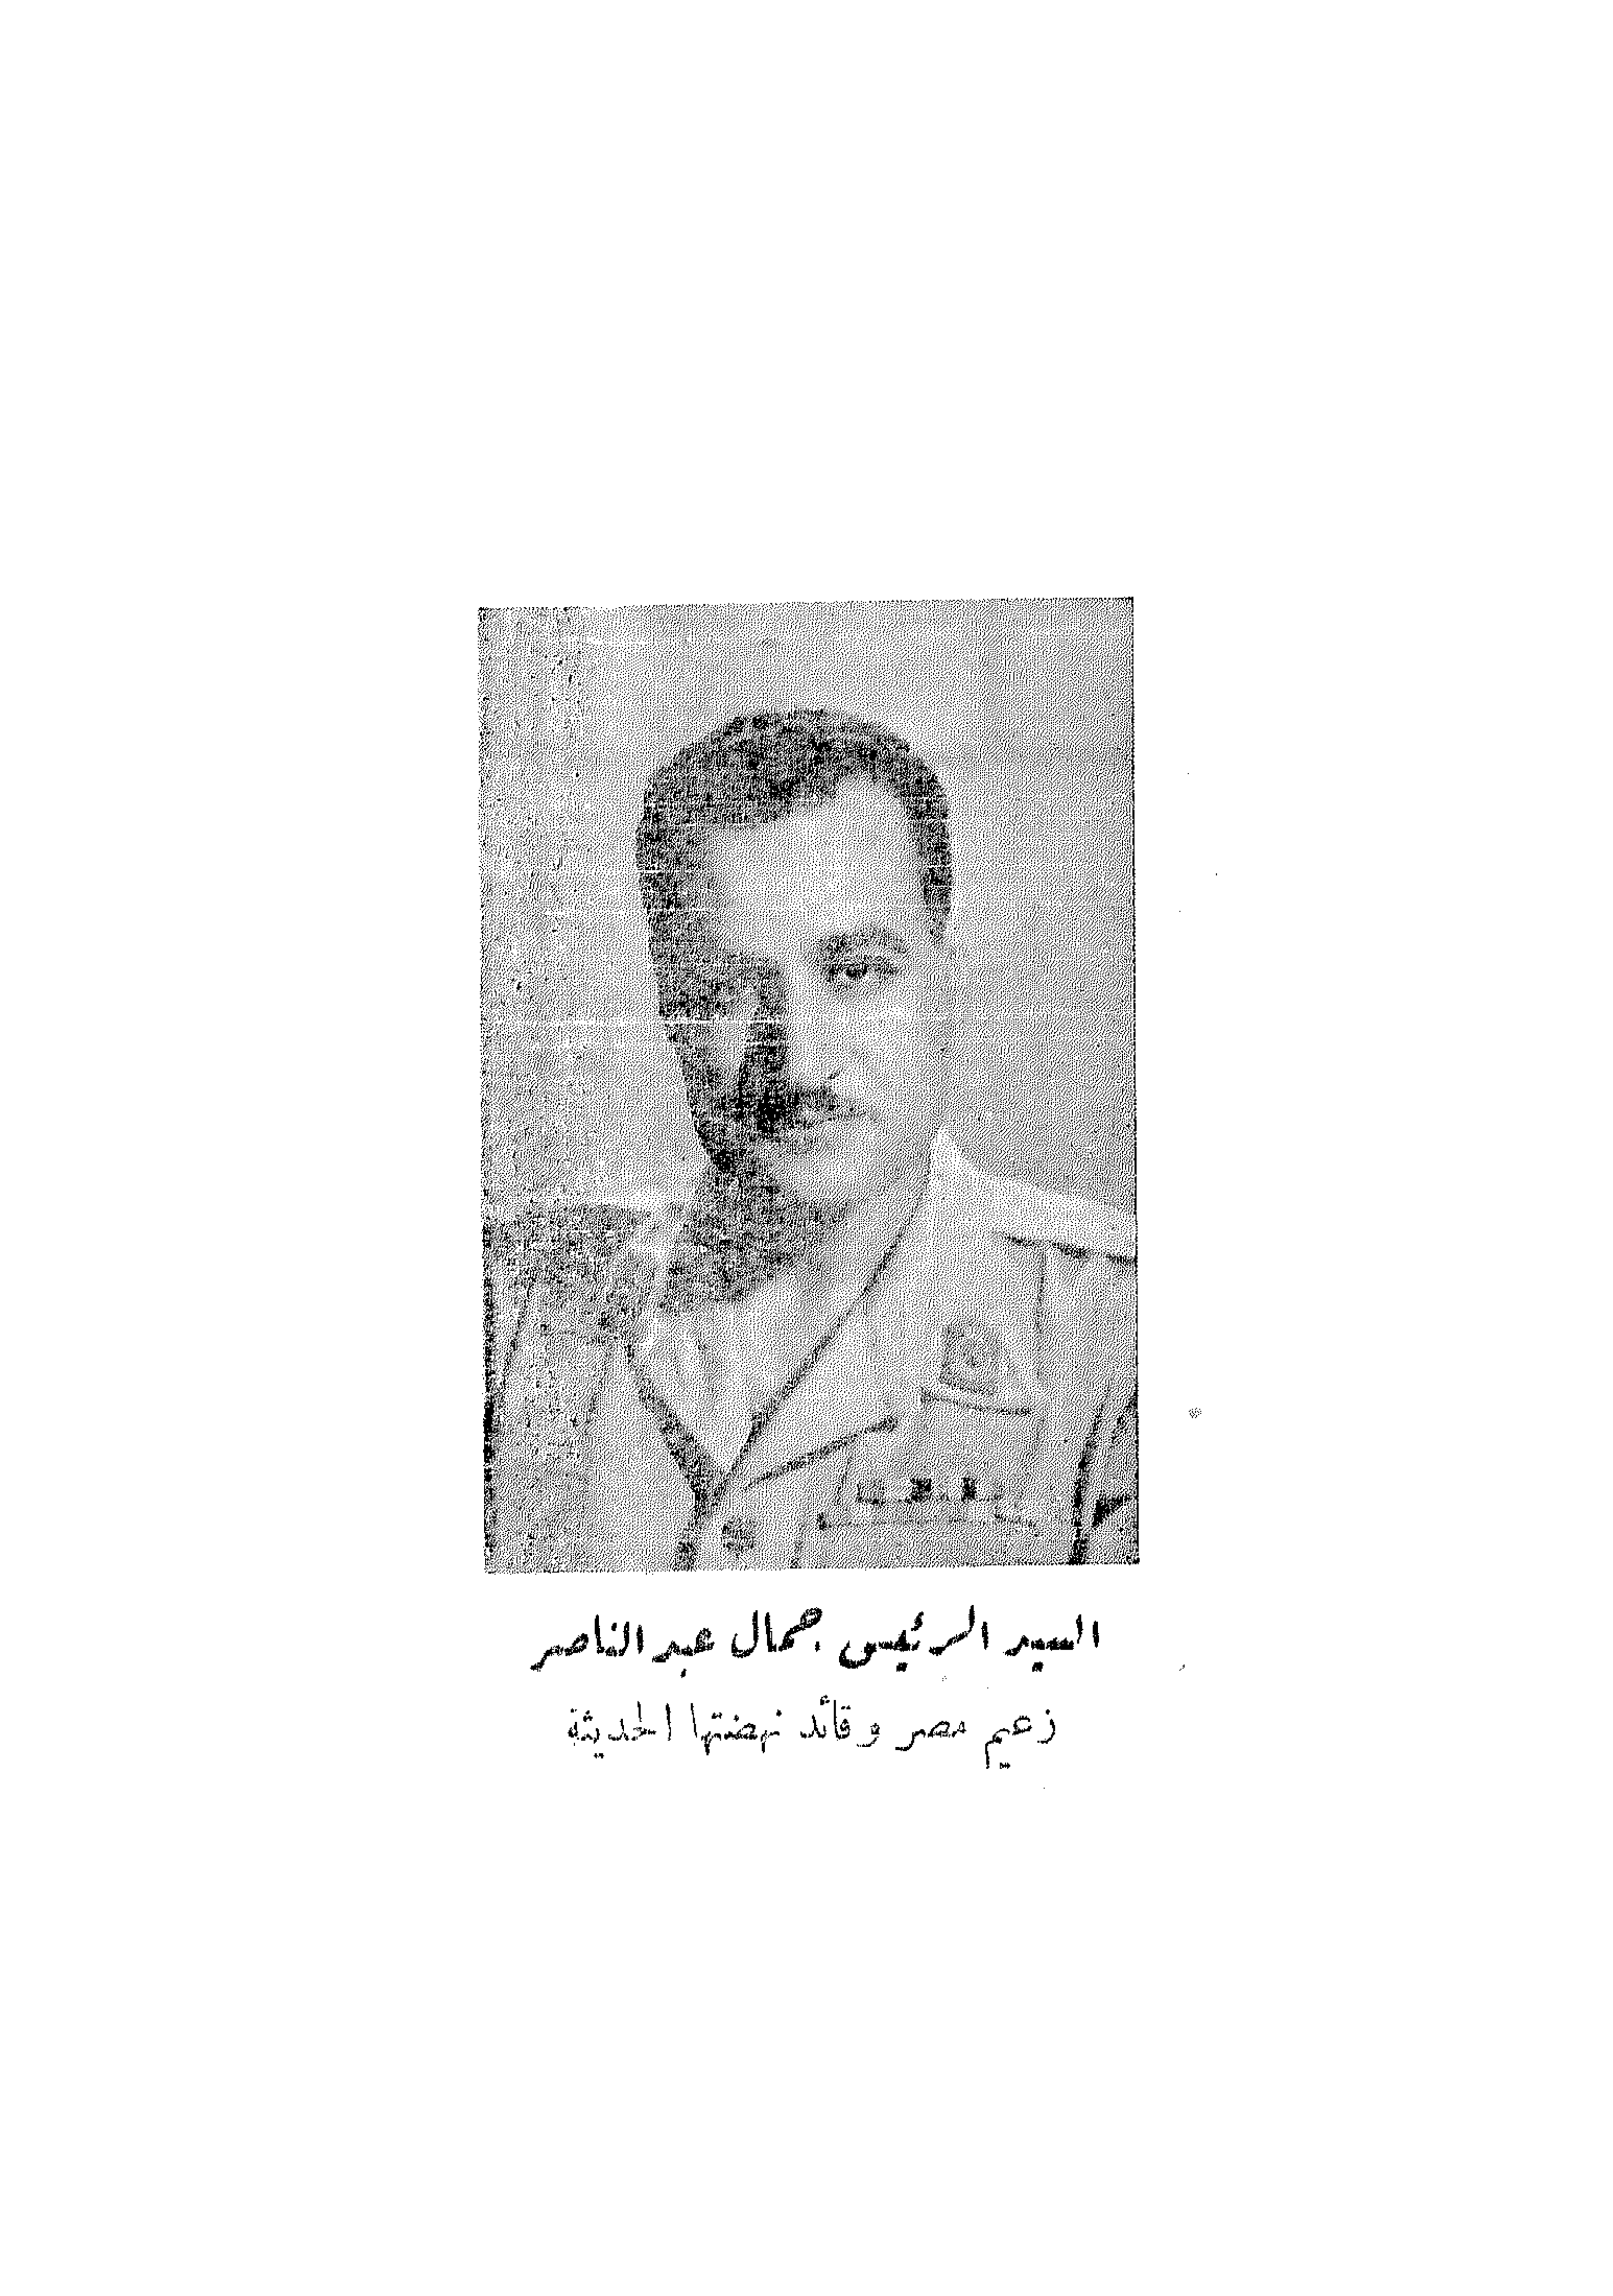 السيد الرئيس جمال عبد الناصر
زعيم مصر وقائد نهضتها الحديثة